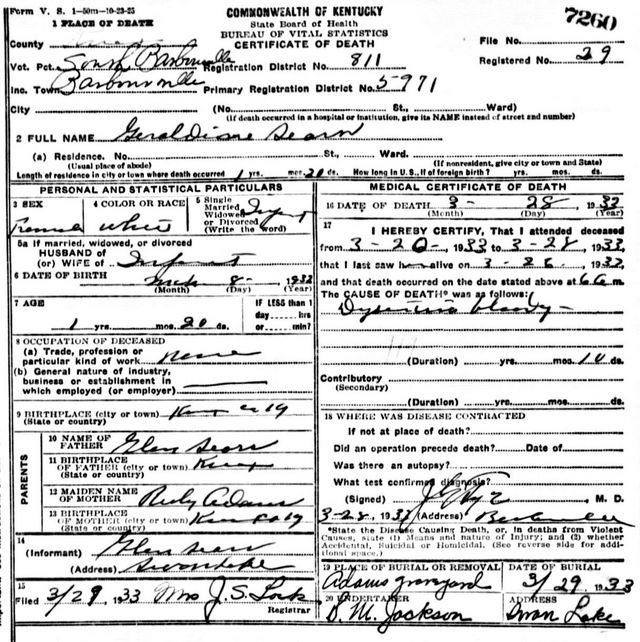 Form V. S. 1-50m-10-23-25
COMMONWEALTH OF KENTUCKY
State Board of Health
BUREAU OF VITAL STATISTICS
CERTIFICATE OF DEATH
7260
1 PLACE OF DEATH
County
File No.
Vot. Pct. South Barbourville Registration District No. 811
Registered No. 29
Inc. Town Barbourville Primary Registration District No. 5971
City (No. St., Ward)
(If death occurred in a hospital or institution, give its NAME instead of street and number)
2 FULL NAME Geraldine Searn
(a) Residence. No. St., Ward.
(Usual place of abode) (If nonresident, give city or town and State)
Length of residence in city or town where death occurred 1 yrs. mos. 20 ds. How long in U.S., if of foreign birth? yrs. mos. ds.
PERSONAL AND STATISTICAL PARTICULARS
3 SEX
4 COLOR OR RACE White
5 Single Married Widowed or Divorced (Write the word) Infant
5a If married, widowed, or divorced
HUSBAND OF
(or) WIFE OF Infant
6 DATE OF BIRTH Mch 8- 1932
(Month) (Day) (Year)
7 AGE
1 yrs. mos. 20 ds.
IF LESS than 1
day hrs
or min?
8 OCCUPATION OF DECEASED
(a) Trade, profession or
particular kind of work None
(b) General nature of industry,
business or establishment in
which employed (or employer)
9 BIRTHPLACE (city or town)
(State or country)
PARENTS
10 NAME OF
FATHER Glen Sears
11 BIRTHPLACE
OF FATHER (city or town) Knox
(State or country)
12 MAIDEN NAME
OF MOTHER Ruby Adams
13 BIRTHPLACE
OF MOTHER (city or town) Knox Co Ky
(State or country)
14
(Informant) Glen Sears
(Address)
15
Filed 3/29 1933 Mrs J. S. Lock
Registrar
MEDICAL CERTIFICATE OF DEATH
16 DATE OF DEATH 3- 28, 1933
(Month) (Day) (Year)
17
I HEREBY CERTIFY, That I attended deceased
from 3-20-, 1933 to 3-28, 1933,
that I last saw h alive on 3-28, 1933,
and that death occurred on the date stated above at 6 a m.
The CAUSE OF DEATH* was as follows:
bloody-
(Duration) yrs. mos. 10 ds.
Contributory
(Secondary)
(Duration) yrs. mos. ds.
18 WHERE WAS DISEASE CONTRACTED
If not at place of death?
Did an operation precede death? Date of
Was there an autopsy?
What test confirmed diagnosis?
(Signed) M. D.
3-28, 1933 (Address)
*State the Disease Causing Death, or, in deaths from Violent
Causes, state (1) Means and nature of Injury; and (2) whether
Accidental, Suicidal or Homicidal. (See reverse side for addi-
tional space.)
19 PLACE OF BURIAL OR REMOVAL DATE OF BURIAL
Adams Graveyard 3/29 1933
20 UNDERTAKER ADDRESS
B. M. Jackson Swan Lake